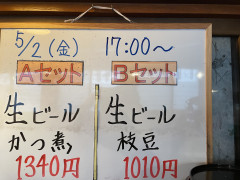 5/2(金) 17:00〜
Aセット
生ビール
かつ煮
1340円
Bセット
生ビール
枝豆
1010円